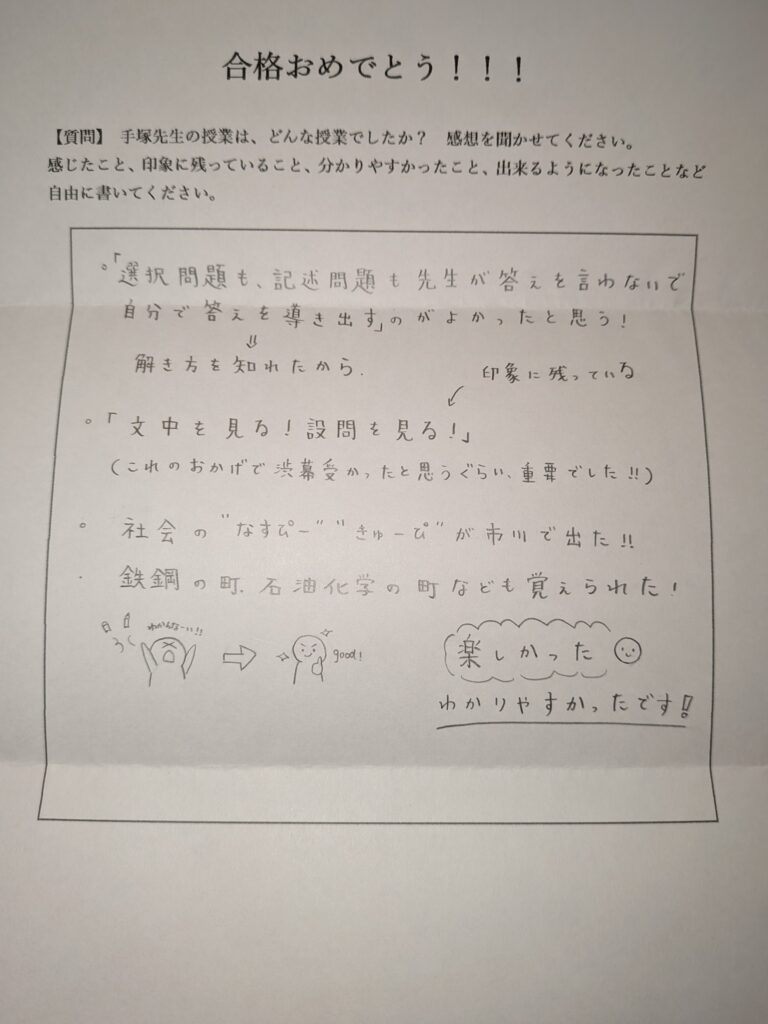 合格おめでとう！！！
【質問】　手塚先生の授業は、どんな授業でしたか？　感想を聞かせてください。
感じたこと、印象に残っていること、分かりやすかったこと、出来るようになったことなど
自由に書いてください。
。「選択問題も、記述問題も先生が答えを言わないで
自分で答えを導き出す」のがよかったと思う!
⇓
解き方を知れたから.
印象に残っている
。「文中を見る!設問を見る!」
(これのおかげで渋幕受かったと思うぐらい、重要でした!!)
。社会の"なすぴー" "きゅーぴ"が市川で出た!!
・鉄鋼の町、石油化学の町なども覚えられた!
わかんなーい!!
good!
楽しかった
わかりやすかったです!